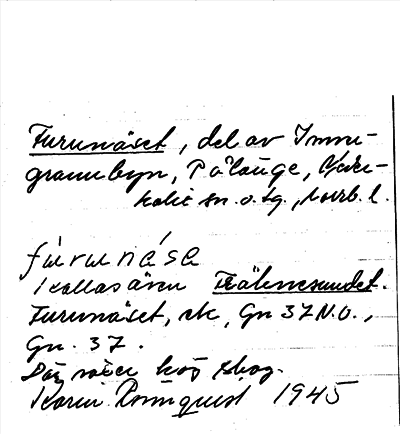 Furunäset, del av Immi-
granbyn, På länge, Neder-
kalix sn. o. tg., Norrb. l.
fùrunása
kallas även Trälnesundet.
Furunäset, ek, Gn 37 N.O.,
Gn. 37.
Där växer hög skog.
Karin Rönnquist 1945